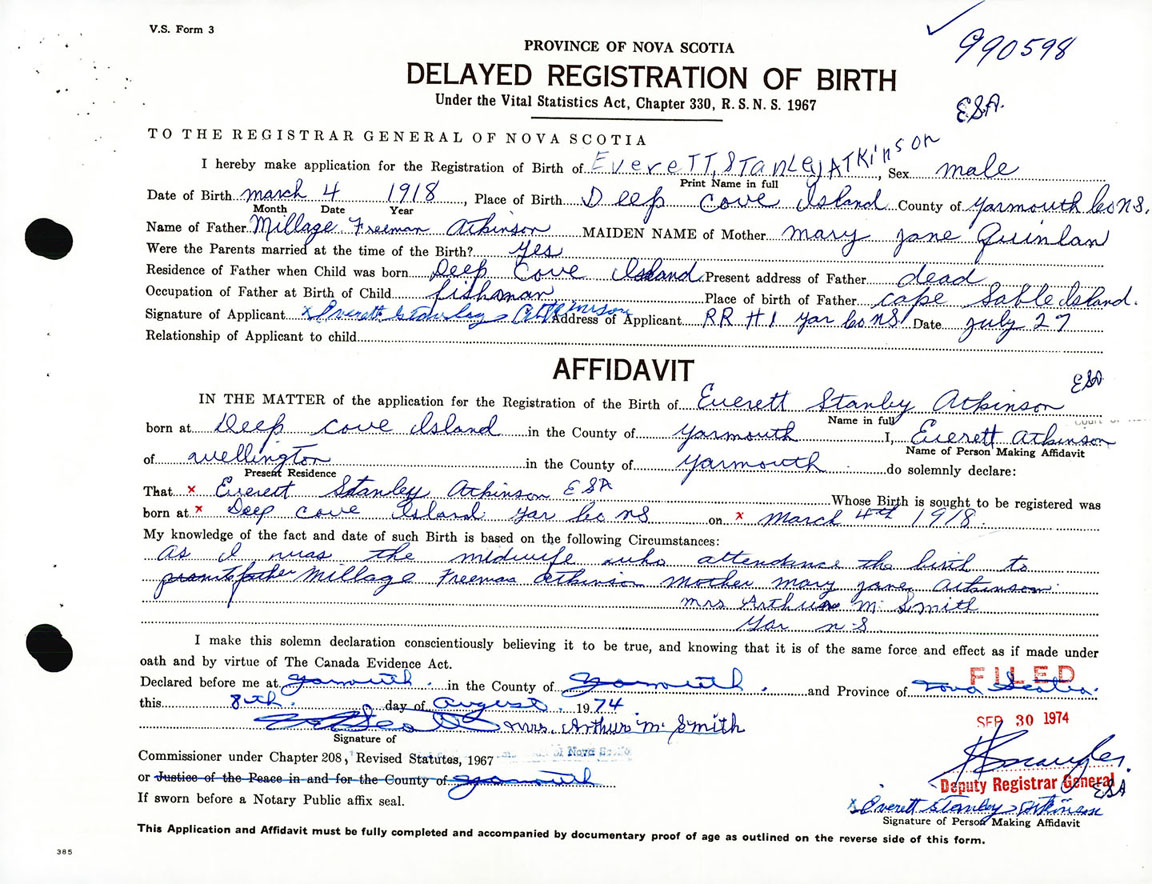 V.S. Form 3
990598
PROVINCE OF NOVA SCOTIA
DELAYED REGISTRATION OF BIRTH
Under the Vital Statistics Act, Chapter 330, R. S. N. S. 1967
ESA.
TO THE REGISTRAR GENERAL OF NOVA SCOTIA
I hereby make application for the Registration of Birth of Everett, Stanley Atkinson, Sex male
Print Name in full
Date of Birth march 4 1918, Place of Birth Deep Cove Island County of Yarmouth Co NS.
Month Date Year
Name of Father Millage Freeman Atkinson MAIDEN NAME of Mother mary jane Quinlan
Were the Parents married at the time of the Birth? yes
Residence of Father when Child was born Deep Cove Island Present address of Father dead
Occupation of Father at Birth of Child fishoman Place of birth of Father cape Sable Island.
Signature of Applicant x Everett Stanley Atkinson Address of Applicant RR #1 Yar Co NS Date july 27
Relationship of Applicant to child
AFFIDAVIT
ESA
IN THE MATTER of the application for the Registration of the Birth of Everett Stanley Atkinson
Name in full
born at Deep Cove Island in the County of Yarmouth I, Everett Atkinson
Name of Person Making Affidavit
of wellington in the County of Yarmouth do solemnly declare:
Present Residence
That x Everett Stanley Atkinson ESA Whose Birth is sought to be registered was
born at x Deep Cove Island Yar Co NS on x March 4th 1918.
My knowledge of the fact and date of such Birth is based on the following Circumstances:
as I was the midwife who attendance the birth to
father Millage Freeman Atkinson mother mary jane Atkinson
mrs Arthur M. Smith
Yar n.S
I make this solemn declaration conscientiously believing it to be true, and knowing that it is of the same force and effect as if made under
oath and by virtue of The Canada Evidence Act.
Declared before me at Yarmouth. in the County of Yarmouth. and Province of Nova Scotia.
FILED
this 8th day of August, 1974
SEP 30 1974
mrs. Arthur M. Smith
Signature of
Commissioner under Chapter 208, Revised Statutes, 1967 Nova Scotia
or Justice of the Peace in and for the County of Yarmouth
Deputy Registrar General
ESA
If sworn before a Notary Public affix seal.
x Everett Stanley Atkinson
Signature of Person Making Affidavit
This Application and Affidavit must be fully completed and accompanied by documentary proof of age as outlined on the reverse side of this form.
385